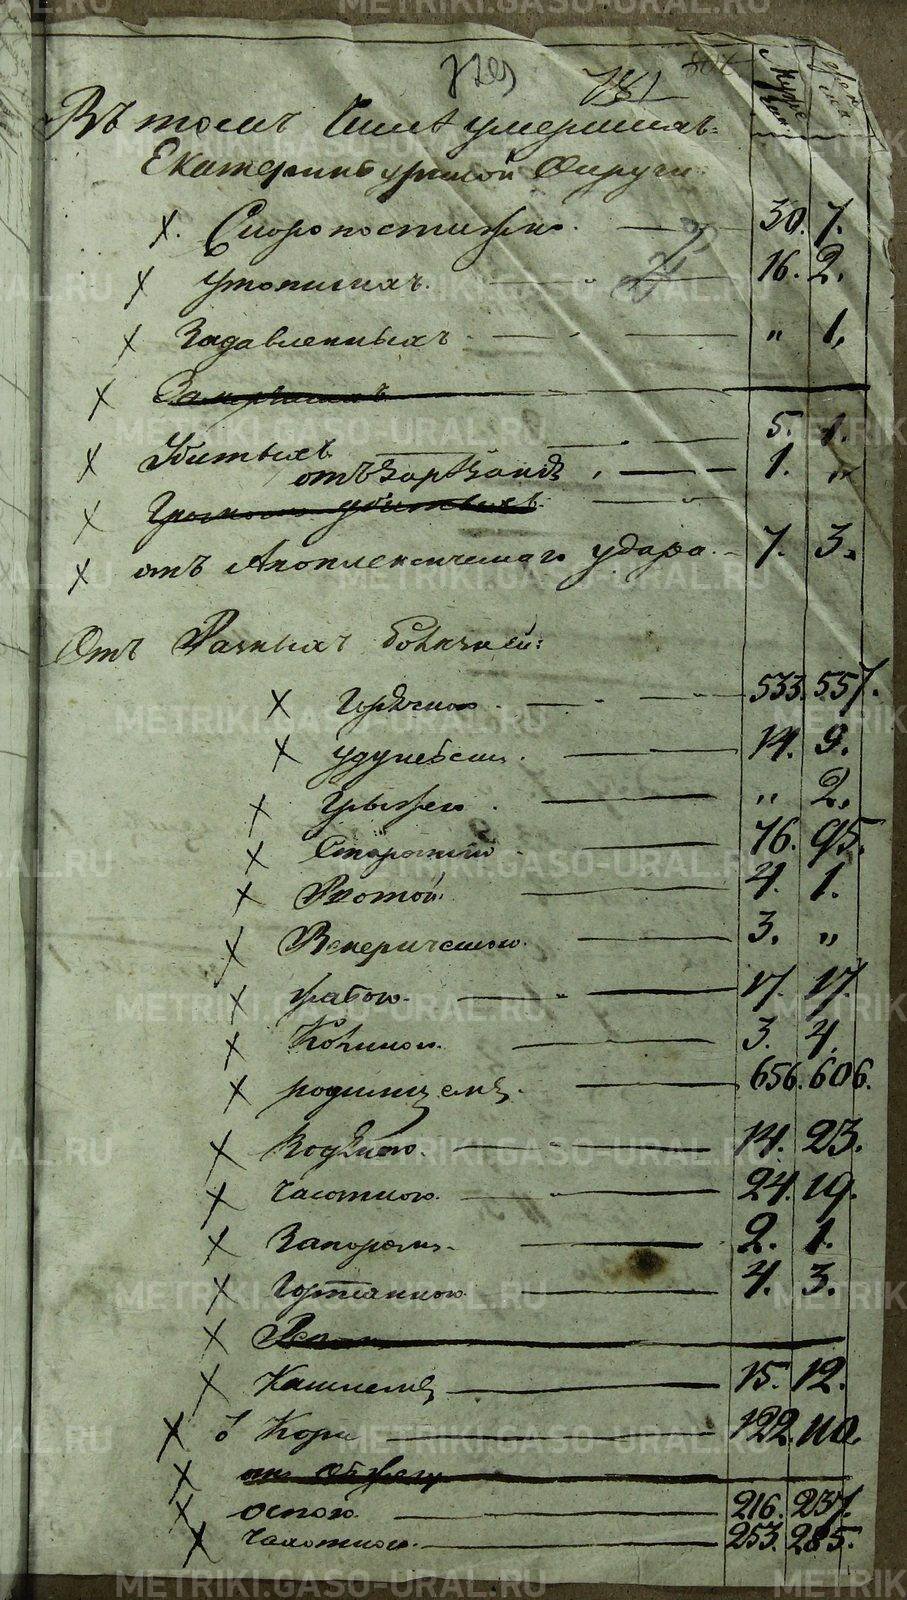 781
Мужс. Женс.
Въ томъ числѣ умершихъ:
Екатеринбургской Округи
Х. Скоропостижно. 30. 7.
Х утопшихъ. 16. 2.
Х Задавленныхъ „ 1.
Х Замерзшихъ
Х Убитыхъ 5. 1.
1. „
Х Громомъ убитыхъ
Х отъ Апоплексическаго удара 7. 3.
Отъ Разныхъ болѣзней:
Х Горячкою 533. 557.
Х удушьемъ. 14. 9.
Х Грыжею „ 2.
Х Старостію 76. 95.
Х Рвотой 4. 1.
Х Венерическою 3. „
Х жабою 17 17
Х Коликою 3. 4.
Х родимцемъ 656. 606.
Х Водяною. 14. 23.
Х Чахоткою 24. 19.
Х Запоромъ 2. 1.
Х Гортанною 4. 3.
Х
Х Кашлемъ 15. 12.
Х Корью 122. 110.
Х
Х оспою 216. 237.
Х 253. 285.
METRIKI.GASO-URAL.RU